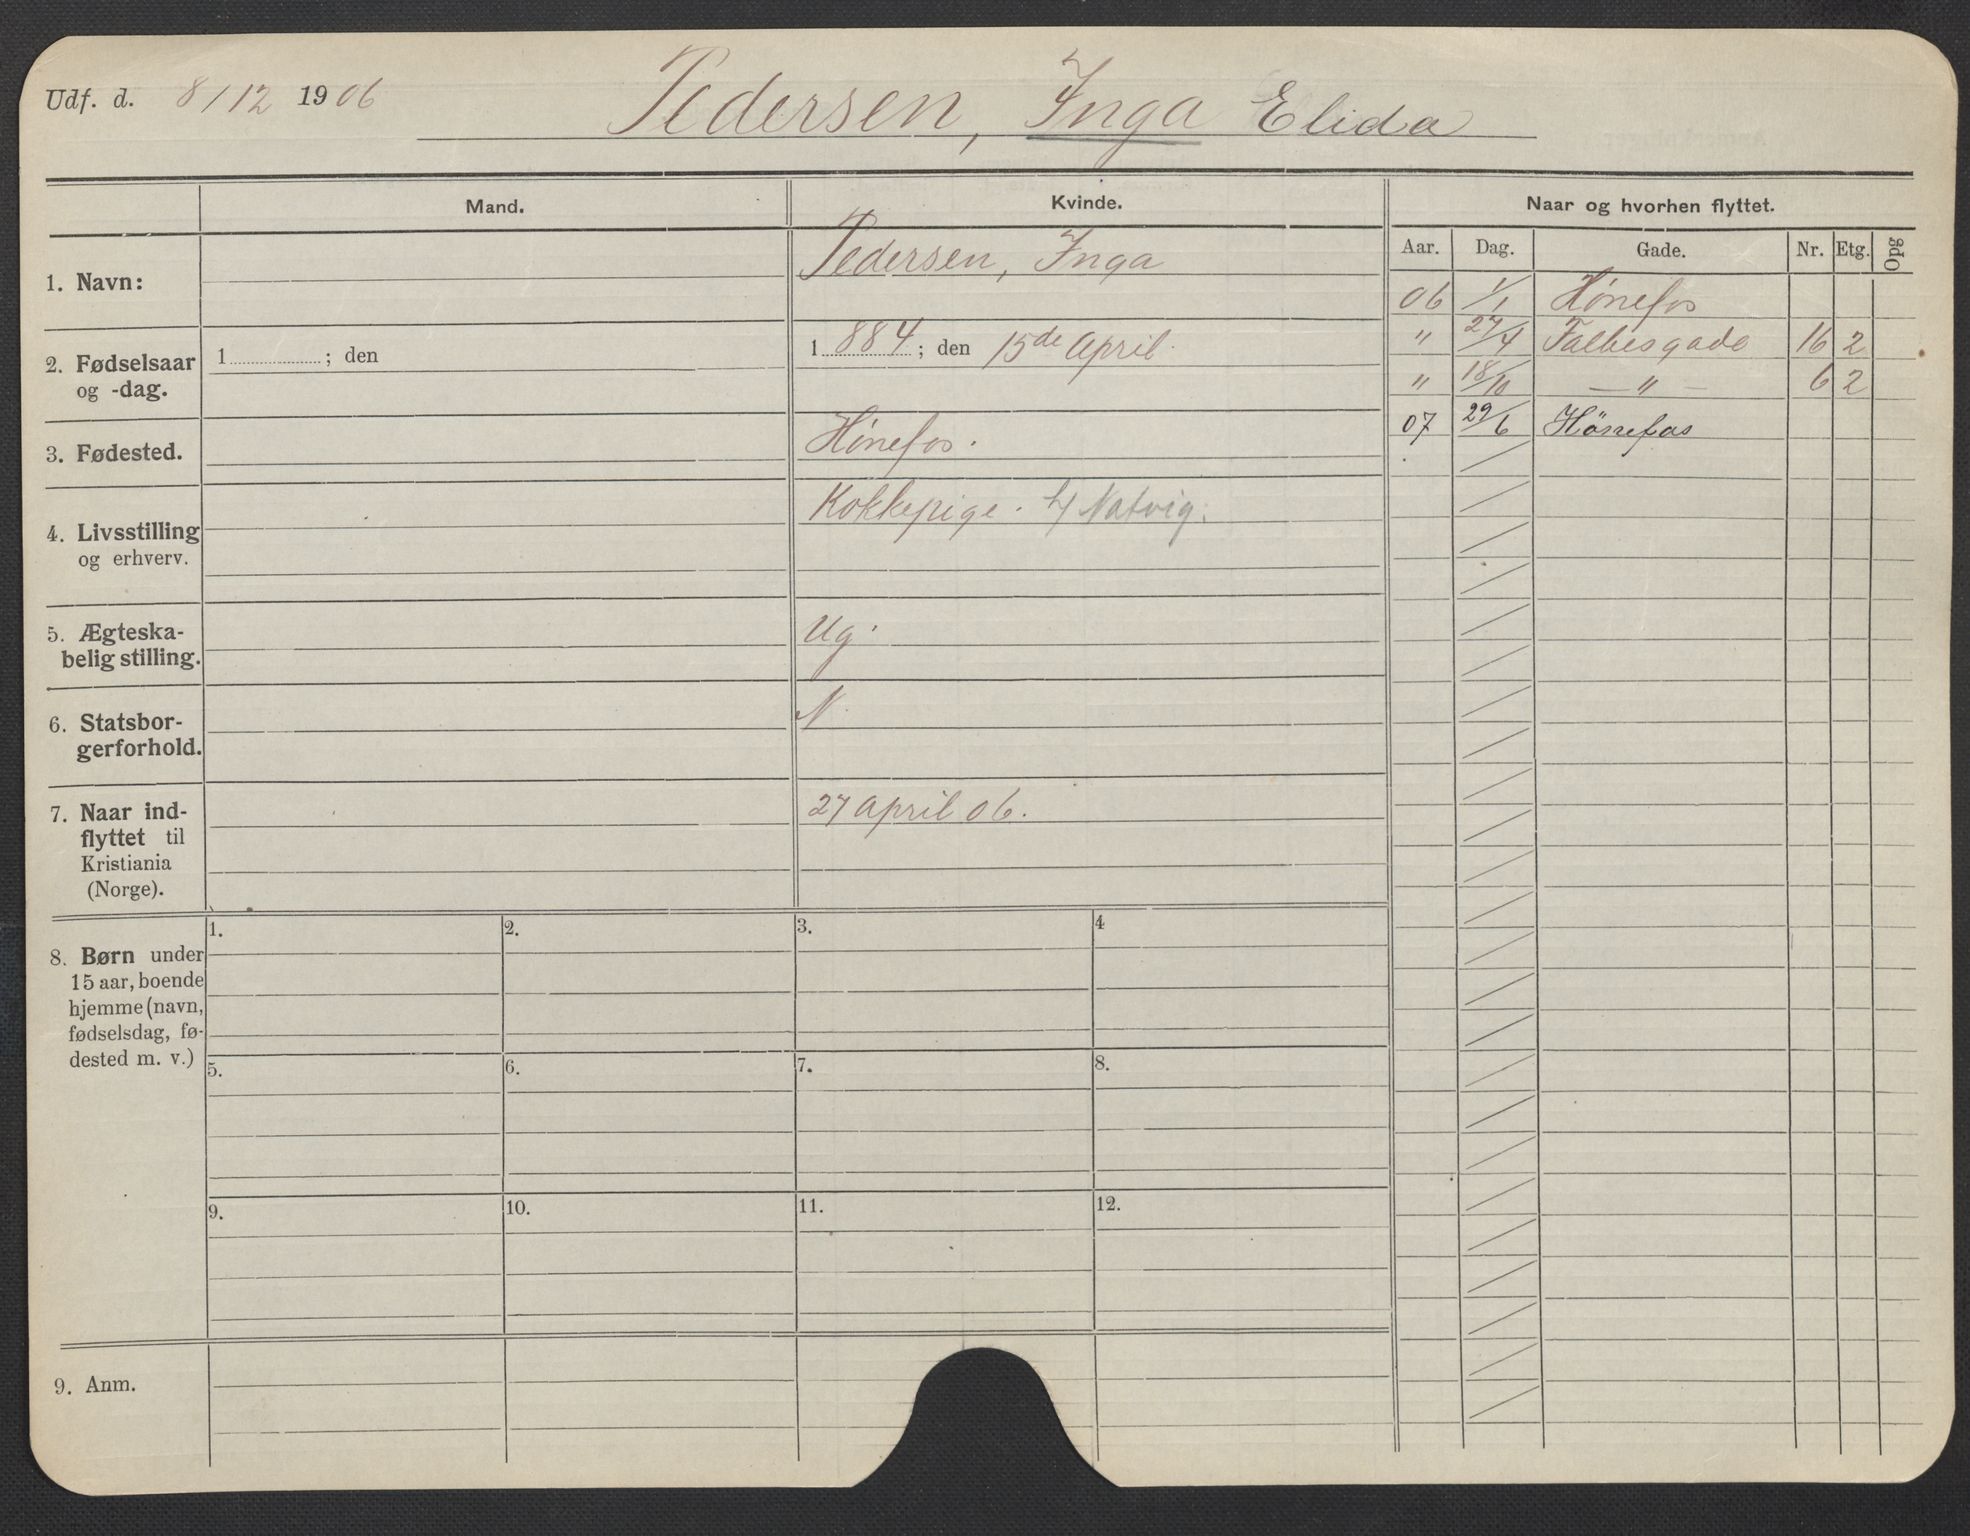 Udf. d. 8/12 1906
Pedersen, Inga Elida
Mand.
Kvinde.
Naar og hvorhen flyttet.
Aar. Dag. Gade. Nr. Etg. Opg
1. Navn:
Pedersen, Inga
2. Fødselsaar
og -dag.
1 ; den
1884; den 15de April.
3. Fødested.
Hønefos.
4. Livsstilling
og erhverv.
Kokkepige. h/ Natvig.
5. Ægteska-
belig stilling.
Ug.
6. Statsbor-
gerforhold.
N.
7. Naar ind-
flyttet til
Kristiania
(Norge).
27 april 06.
06 1/1 Hønefos
" 27/4 Falbesgade 16 2
" 18/10 — " — 6 2
07 29/6 Hönefos
8. Børn under
15 aar, boende
hjemme (navn,
fødselsdag, fø-
dested m. v.)
1. 2. 3. 4
5. 6. 7. 8.
9. 10. 11. 12.
9. Anm.